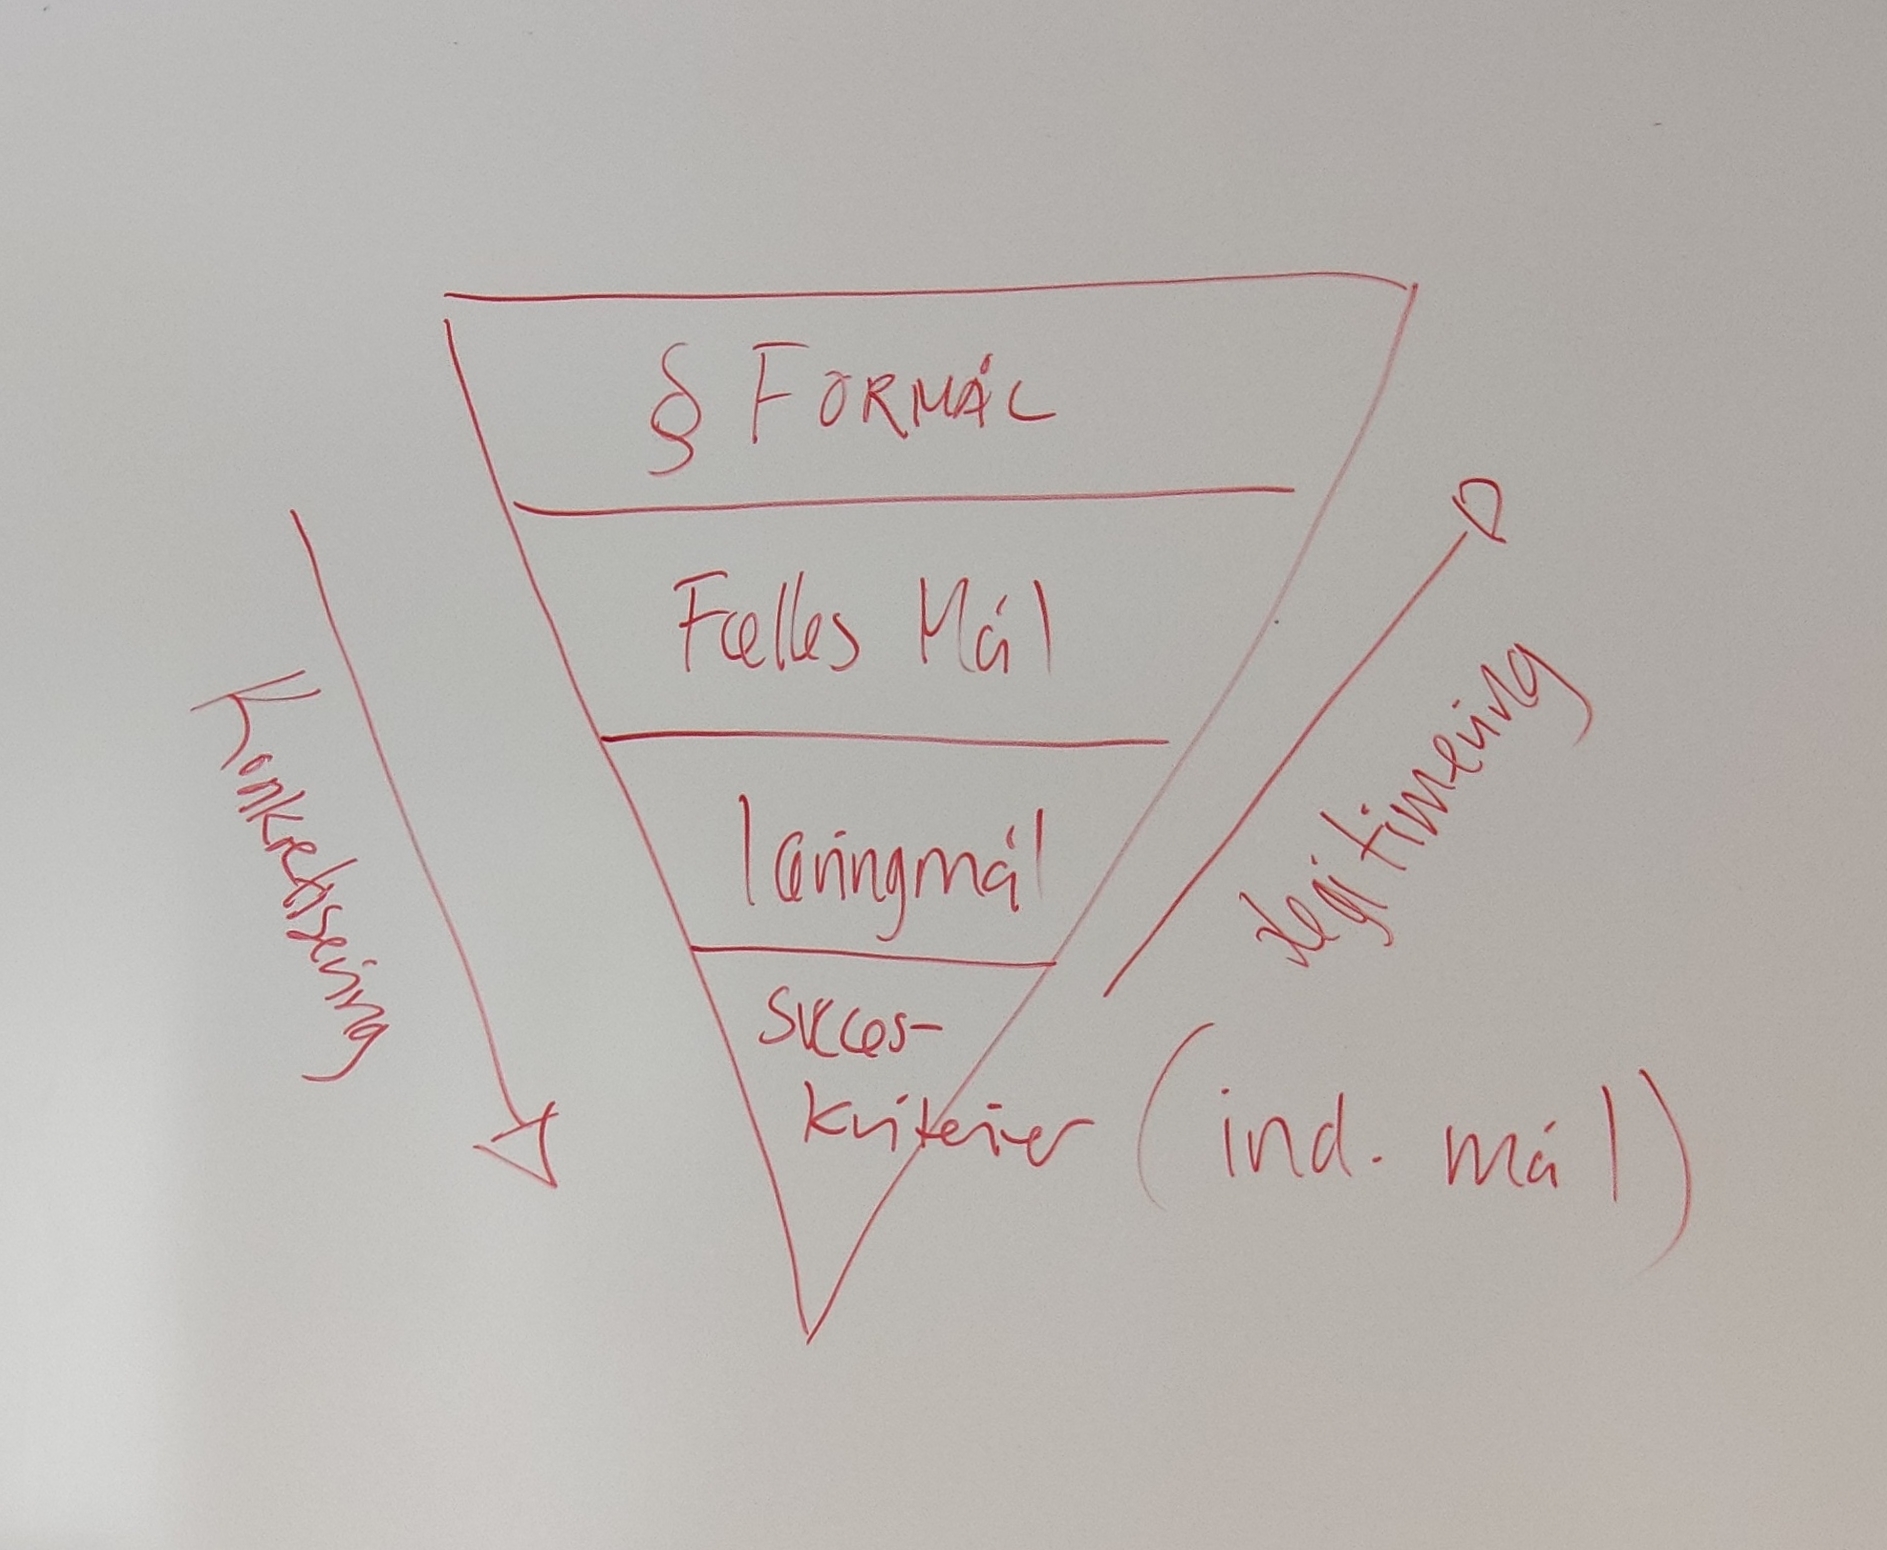 § FORMÅL
Fælles Mål
læringmål
Succes-
kriterier (ind. mål)
Konkretisering
Legitimering